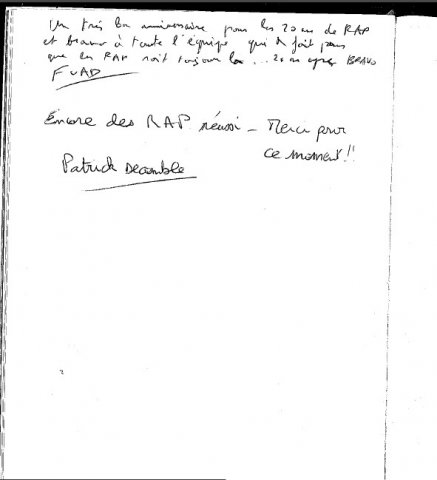 Un très bon anniversaire pour les 20 ans de RAP
et bravo à toute l'équipe qui a fait
que les RAP soit toujours la... 20 ans après BRAVO
FUAD
Encore des RAP réussi - Merci pour
ce moment!!
Patrick